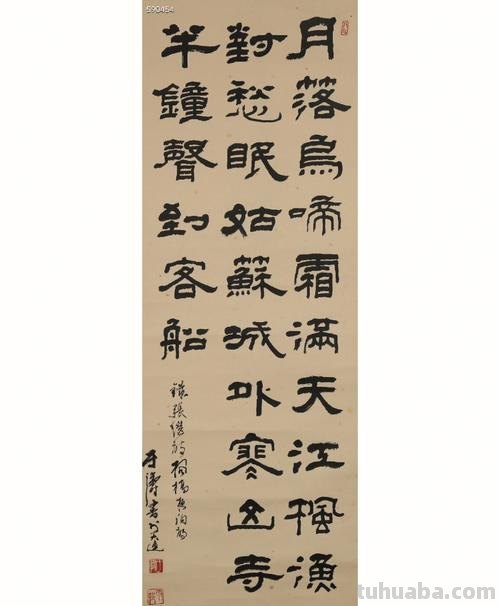 590454
月落烏啼霜滿天江楓漁
對愁眠姑蘇城外寒山寺
半鐘聲到客船
錄張繼詩楓橋夜泊
書於大連
tuhuaba.com